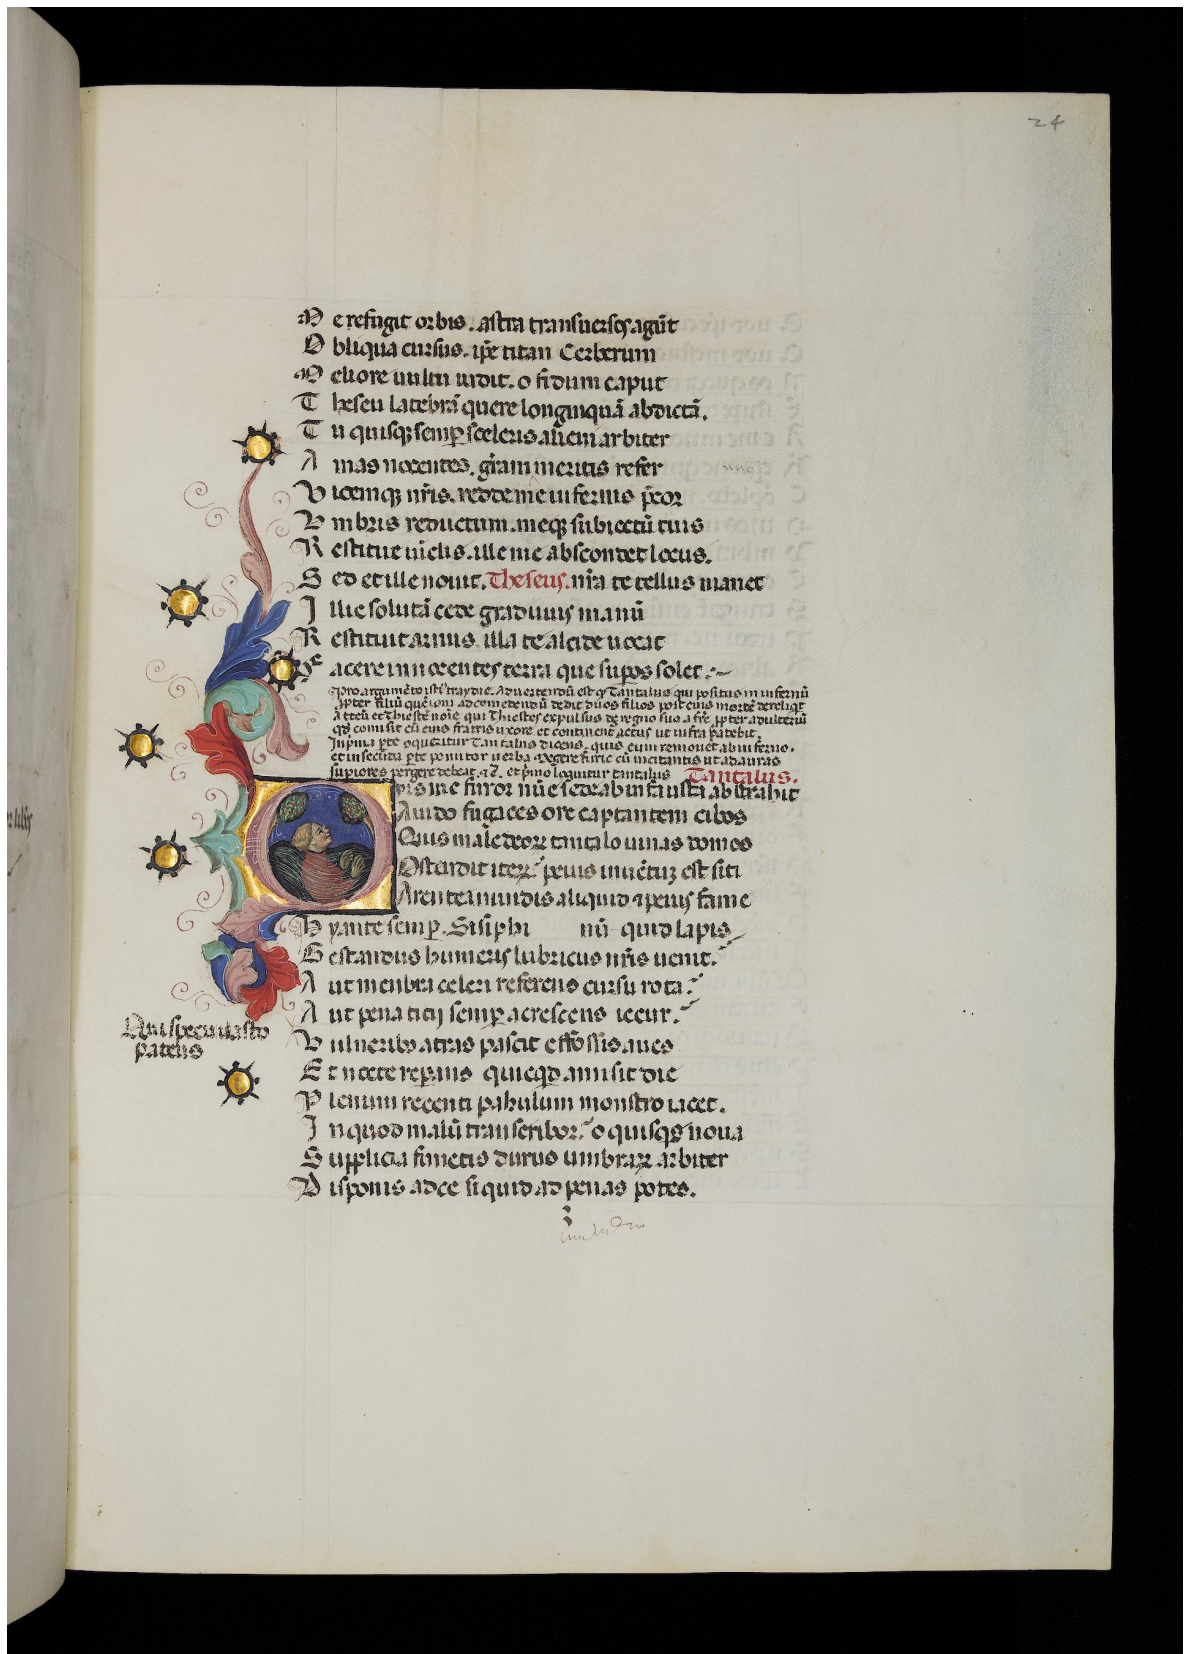 24
Me refugit orbis. astra transuersos agūt
Obliqua cursus. ip̄e titan Cerberum
Meliore uultu uidit. o fidum caput
Theseu latebrā quere longinquā abdictā.
Tu quisq; semꝑ sceleris alieni arbiter
Amas nocentes. grām meritis refer
Vicemq; nr̄is. redde me infernis p̄cor
Vmbris reductum. meq; subiectū tuis
Restitue uinclis. ille me abscondet locus.
Sed et ille nouit. Theseus. nr̄a te tellus manet
Illic solutā cede gradiuus manū
Restituit armis. illa te alcide uocat
Facere innocentes terra que suꝑos solet :~
Pro argumēto isti' traydie. Aduertendū est ꝙ Tantalus qui positus in infernū
ꝓpter filiū quē ioui ad comedendū dedit duos filios post eius mortē dereliqt
Atreū et Thiestē noīe qui Thiestes expulsus de regno suo a fr̄e ꝓpter adulteriū
qd̄ comisit cū eius fratris uxore et continent actus ut infra patebit.
In prima ꝑte ꝯqueritur Tantalus dicens. quis eum remouet ab inferno.
et in secūda ꝑte ponitur uerba Megere furie eū incitantis ut ad auras
suꝑiores pergere debeat. ⁊c̄. et p̄mo loquitur tantalus Tantalus.
Qvis me furor nūc sede ab infausta abstrahit
Auido fugaces ore captantem cibos
Quis male deoꝝ tantalo uiuas domos
Ostendit iteꝝ. peius inuētuȝ est siti
Arente in undis aliquid ⁊ peius fame
Hyante semꝑ. Sisiphi nū quid lapis
Gestandus humeris lubricus nr̄is uenit.
Aut menbra celeri referens cursu rota.
Aut pena ticij semꝑ acrescens iecur.
Qui specu uasto
patens
Vulneribȝ atras pascit effossis aues
Et nocte reꝑans quicqd̄ amisit die
Plenum recenti pabulum monstro iacet.
In quod malū transcribor. o quisqs noua
Supplicia functis durus umbraꝝ arbiter
Disponis adde siquid ad penas potes.